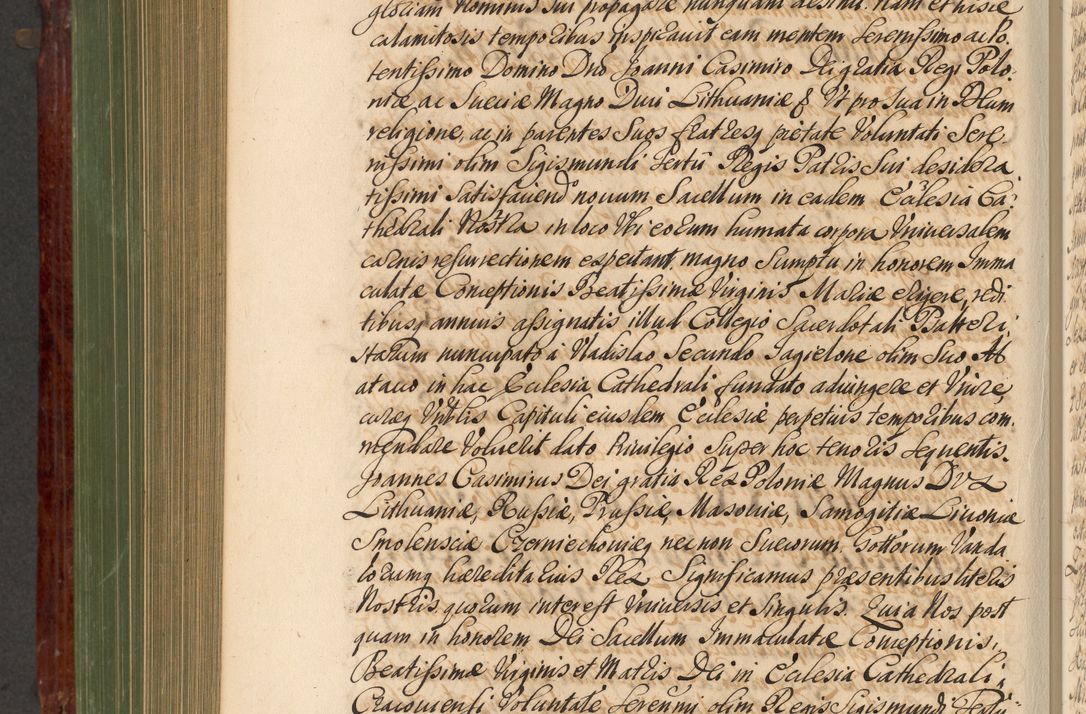 gloriam Nominis sui propagare nunquam desinit. Nam et hisce
calamitosis temporibus inspirauit eam mentem Serenissimo ac Po
tentissimo Domino Dno Joanni Casimiro Dei gratia Regi Polo:
niæ ac Sueciæ Magno Duci Lithuaniæ & Vt pro sua in Deum
religione, ac in parentes suos fratresq pietate Voluntati Sere,
nissimi olim Sigismundi Tertij Regis Patris sui desidera
tissimi satisfaciend nouum Sacellum in eadem Ecclesia Ca:
thedrali Nostra in loco Vbi eorum humata corpora Vniuersalem
carnis resurrectionem expectant, magno Sumptu in honorem Imma
culatæ Conceptionis Beatissimæ Virginis Mariæ erigere, redi
tibusq annuis assignatis illud Collegio Sacerdotali Psalteri,
starum nuncupato à Vladislao Secundo Jagielone olim suo At
atauo in hac Ecclesia Cathedrali fundato adiungere et Vnire,
curæq Vniblis Capituli eiusdem Ecclesiæ perpetuis temporibus com,
mendare Voluerit dato Priuilegio super hoc tenoris sequentis.
Joannes Casimirus Dei gratia Rex Poloniæ Magnus Dux
Lithuaniæ, Russiæ, Prussiæ, Masouiæ, Samogitiæ Liuoniæ
Smolensciæ Czerniechouiæq necnon Suecorum, Gottorum Vanda
lorumq hæreditarius Rex Significamus præsentibus literis
Nostris quorum interest Vniuersis et singulis. Quia Nos post
quam in honorem Dei Sacellum Immaculatæ Conceptionis,
Beatissimæ Virginis et Matris Dei in Ecclesia Cathedrali,
Cracouiensi Voluntate Serenmi olim Regis Sigismundi Tertij